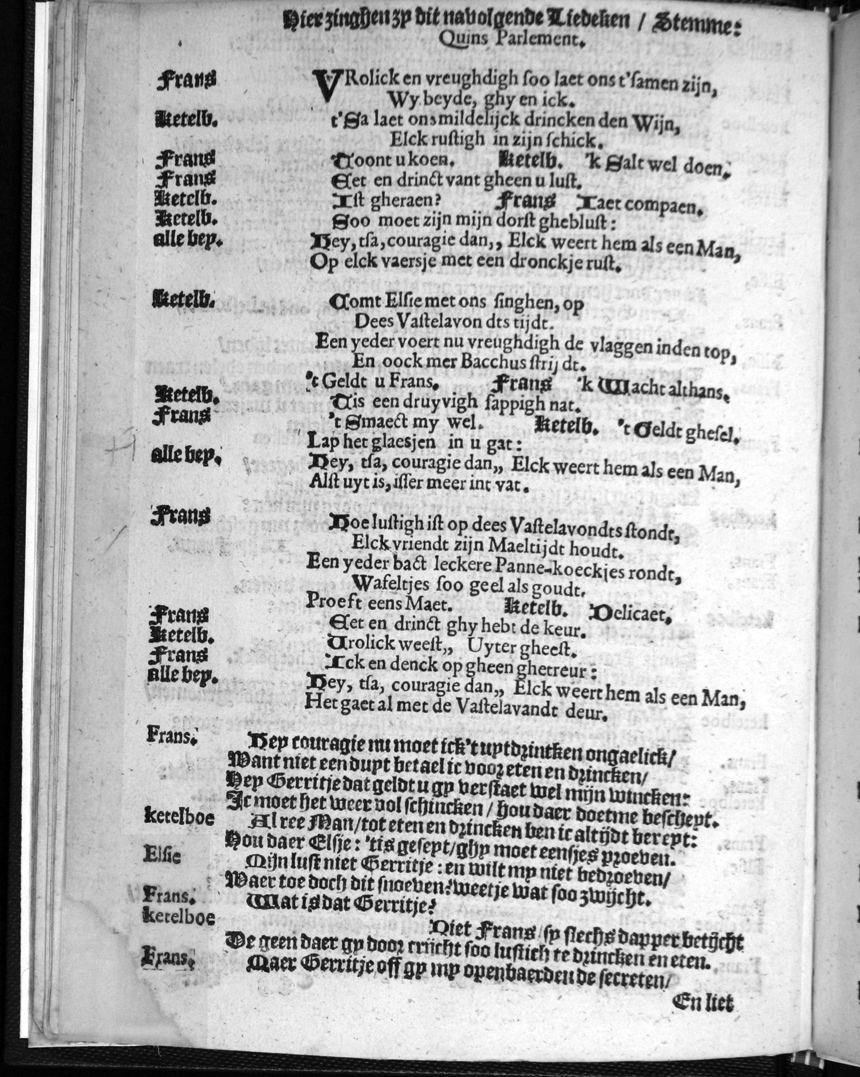 Hier zinghen zy dit navolgende Liedeken / Stemme:
Quins Parlement.
Frans VRolick en vreughdigh soo laet ons t'samen zijn,
Wy beyde, ghy en ick.
Ketelb. t'Sa laet ons mildelijck drincken den Wijn,
Elck rustigh in zijn schick.
Frans Toont u koen. Ketelb. 'k Salt wel doen.
Frans Eet en drinct vant gheen u lust.
Ketelb. Ist gheraen? Frans Iaet compaen.
Ketelb. Soo moet zijn mijn dorst gheblust:
alle bey. Hey, tsa, couragie dan,, Elck weert hem als een Man,
Op elck vaersje met een dronckje rust.
Ketelb. Comt Elsie met ons singhen, op
Dees Vastelavondts tijdt.
Een yeder voert nu vreughdigh de vlaggen inden top,
En oock mer Bacchus strijdt.
't Geldt u Frans. Frans 'k Wacht althans.
Ketelb. Tis een druyvigh sappigh nat.
Frans 't Smaect my wel. Ketelb. 't Geldt ghesel.
Lap het glaesjen in u gat:
alle bey. Hey, tsa, couragie dan,, Elck weert hem als een Man,
Alst uyt is, isser meer int vat.
Frans Hoe lustigh ist op dees Vastelavondts stondt,
Elck vriendt zijn Maeltijdt houdt.
Een yeder bact leckere Panne-koeckjes rondt,
Wafeltjes soo geel als goudt.
Proeft eens Maet. Ketelb. Delicaet.
Frans Eet en drinct ghy hebt de keur.
Ketelb. Vrolick weest,, Uyter gheest.
Frans Ick en denck op gheen ghetreur:
alle bey. Hey, tsa, couragie dan,, Elck weert hem als een Man,
Het gaet al met de Vastelavandt deur.
Frans. Hey couragie nu moet ick't uytdrintken ongaelick/
Want niet een duyt betael ic voor eten en drincken/
Hey Gerritje dat geldt u gy verstaet wel mijn wincken:
Ic moet het weer vol schincken / hou daer doetme bescheyt.
ketelboe Al ree Man/tot eten en drincken ben ic altijdt bereyt:
Hou daer Elsje: 'tis geseyt/ghy moet eensjes proeven.
Elsie Mijn lust niet Gerritje: en wilt my niet bedroeven/
Waer toe doch dit snoeven: weetje wat soo zwijcht.
Frans. Wat is dat Gerritje?
ketelboe Niet Frans/ sy slechs dapper betijcht
De geen daer gy door crijcht soo lustich te drincken en eten.
Frans. Maer Gerritje off gy my openbaerden de secreten/
En liet